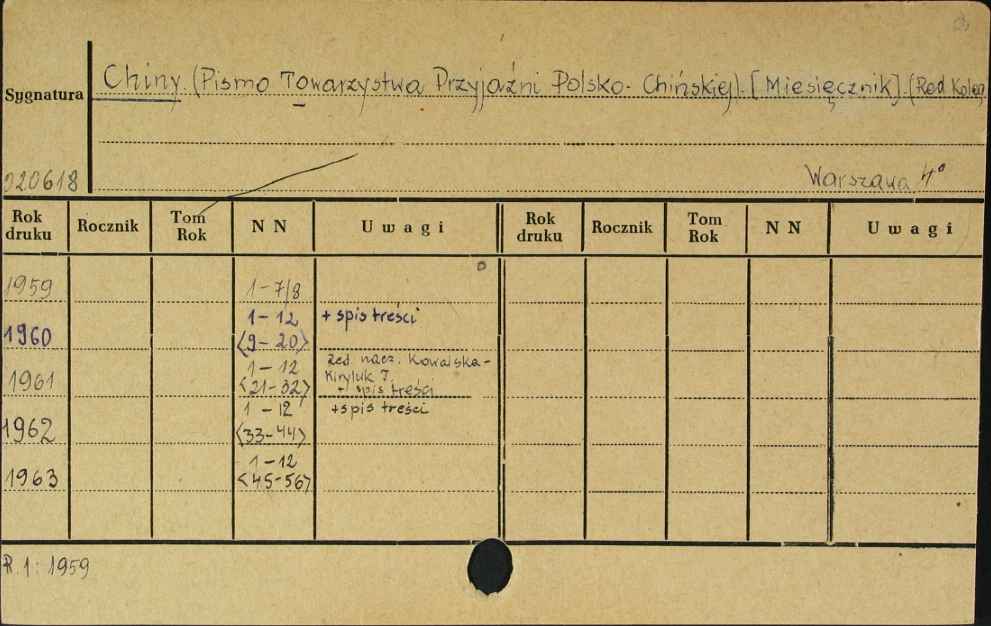 Sygnatura
Chiny. (Pismo Towarzystwa Przyjaźni Polsko-Chińskiej). [Miesięcznik]. (Red Koleg
020618
Warszawa 4°
Rok druku Rocznik Tom Rok N N Uwagi Rok druku Rocznik Tom Rok N N Uwagi
1959 1-7/8
1960 1-12 <9-20> + spis treści
1961 1-12 <21-32> Red. nacz. Kowalska-
Kiryluk T.
+ spis treści
1962 1-12 <33-44> + spis treści
1963 1-12 <45-56>
R. 1: 1959